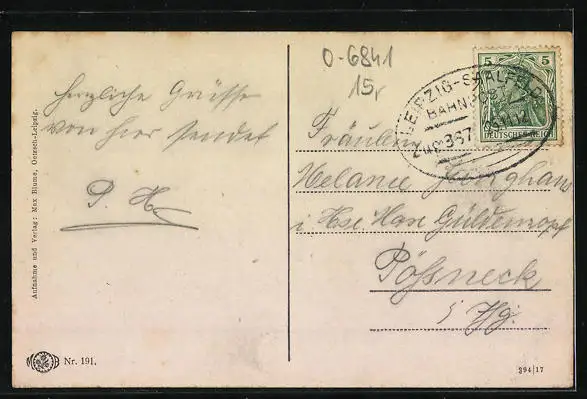 Herzliche Grüsse
von hier sendet
P. H.
Aufnahme und Verlag: Max Blume, Oetzsch-Leipzig.
Nr. 191.
0-6841
15,
5 5
DEUTSCHES REICH
LEIPZIG-SAALFELD
BAHNPOST
Zug 367
Fräulein
Melanie
i. Hse.
Pössneck
i/Thg.
394|17